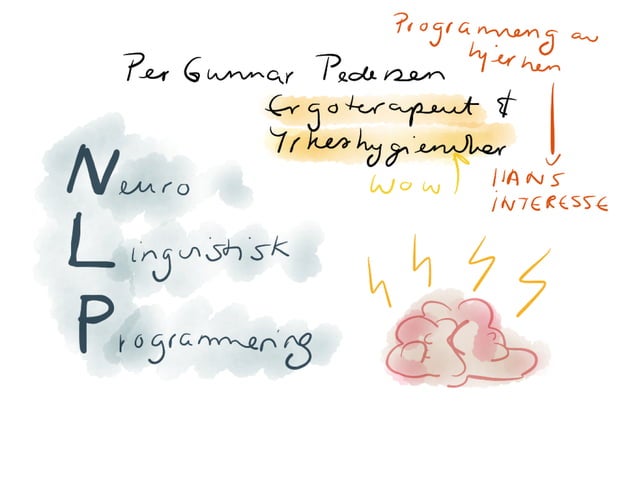 Programmering av
hjernen
Per Gunnar Pedersen
Ergoterapeut &
Yrkeshygieniker
WOW
HANS
INTERESSE
Neuro
Linguistisk
Programmering